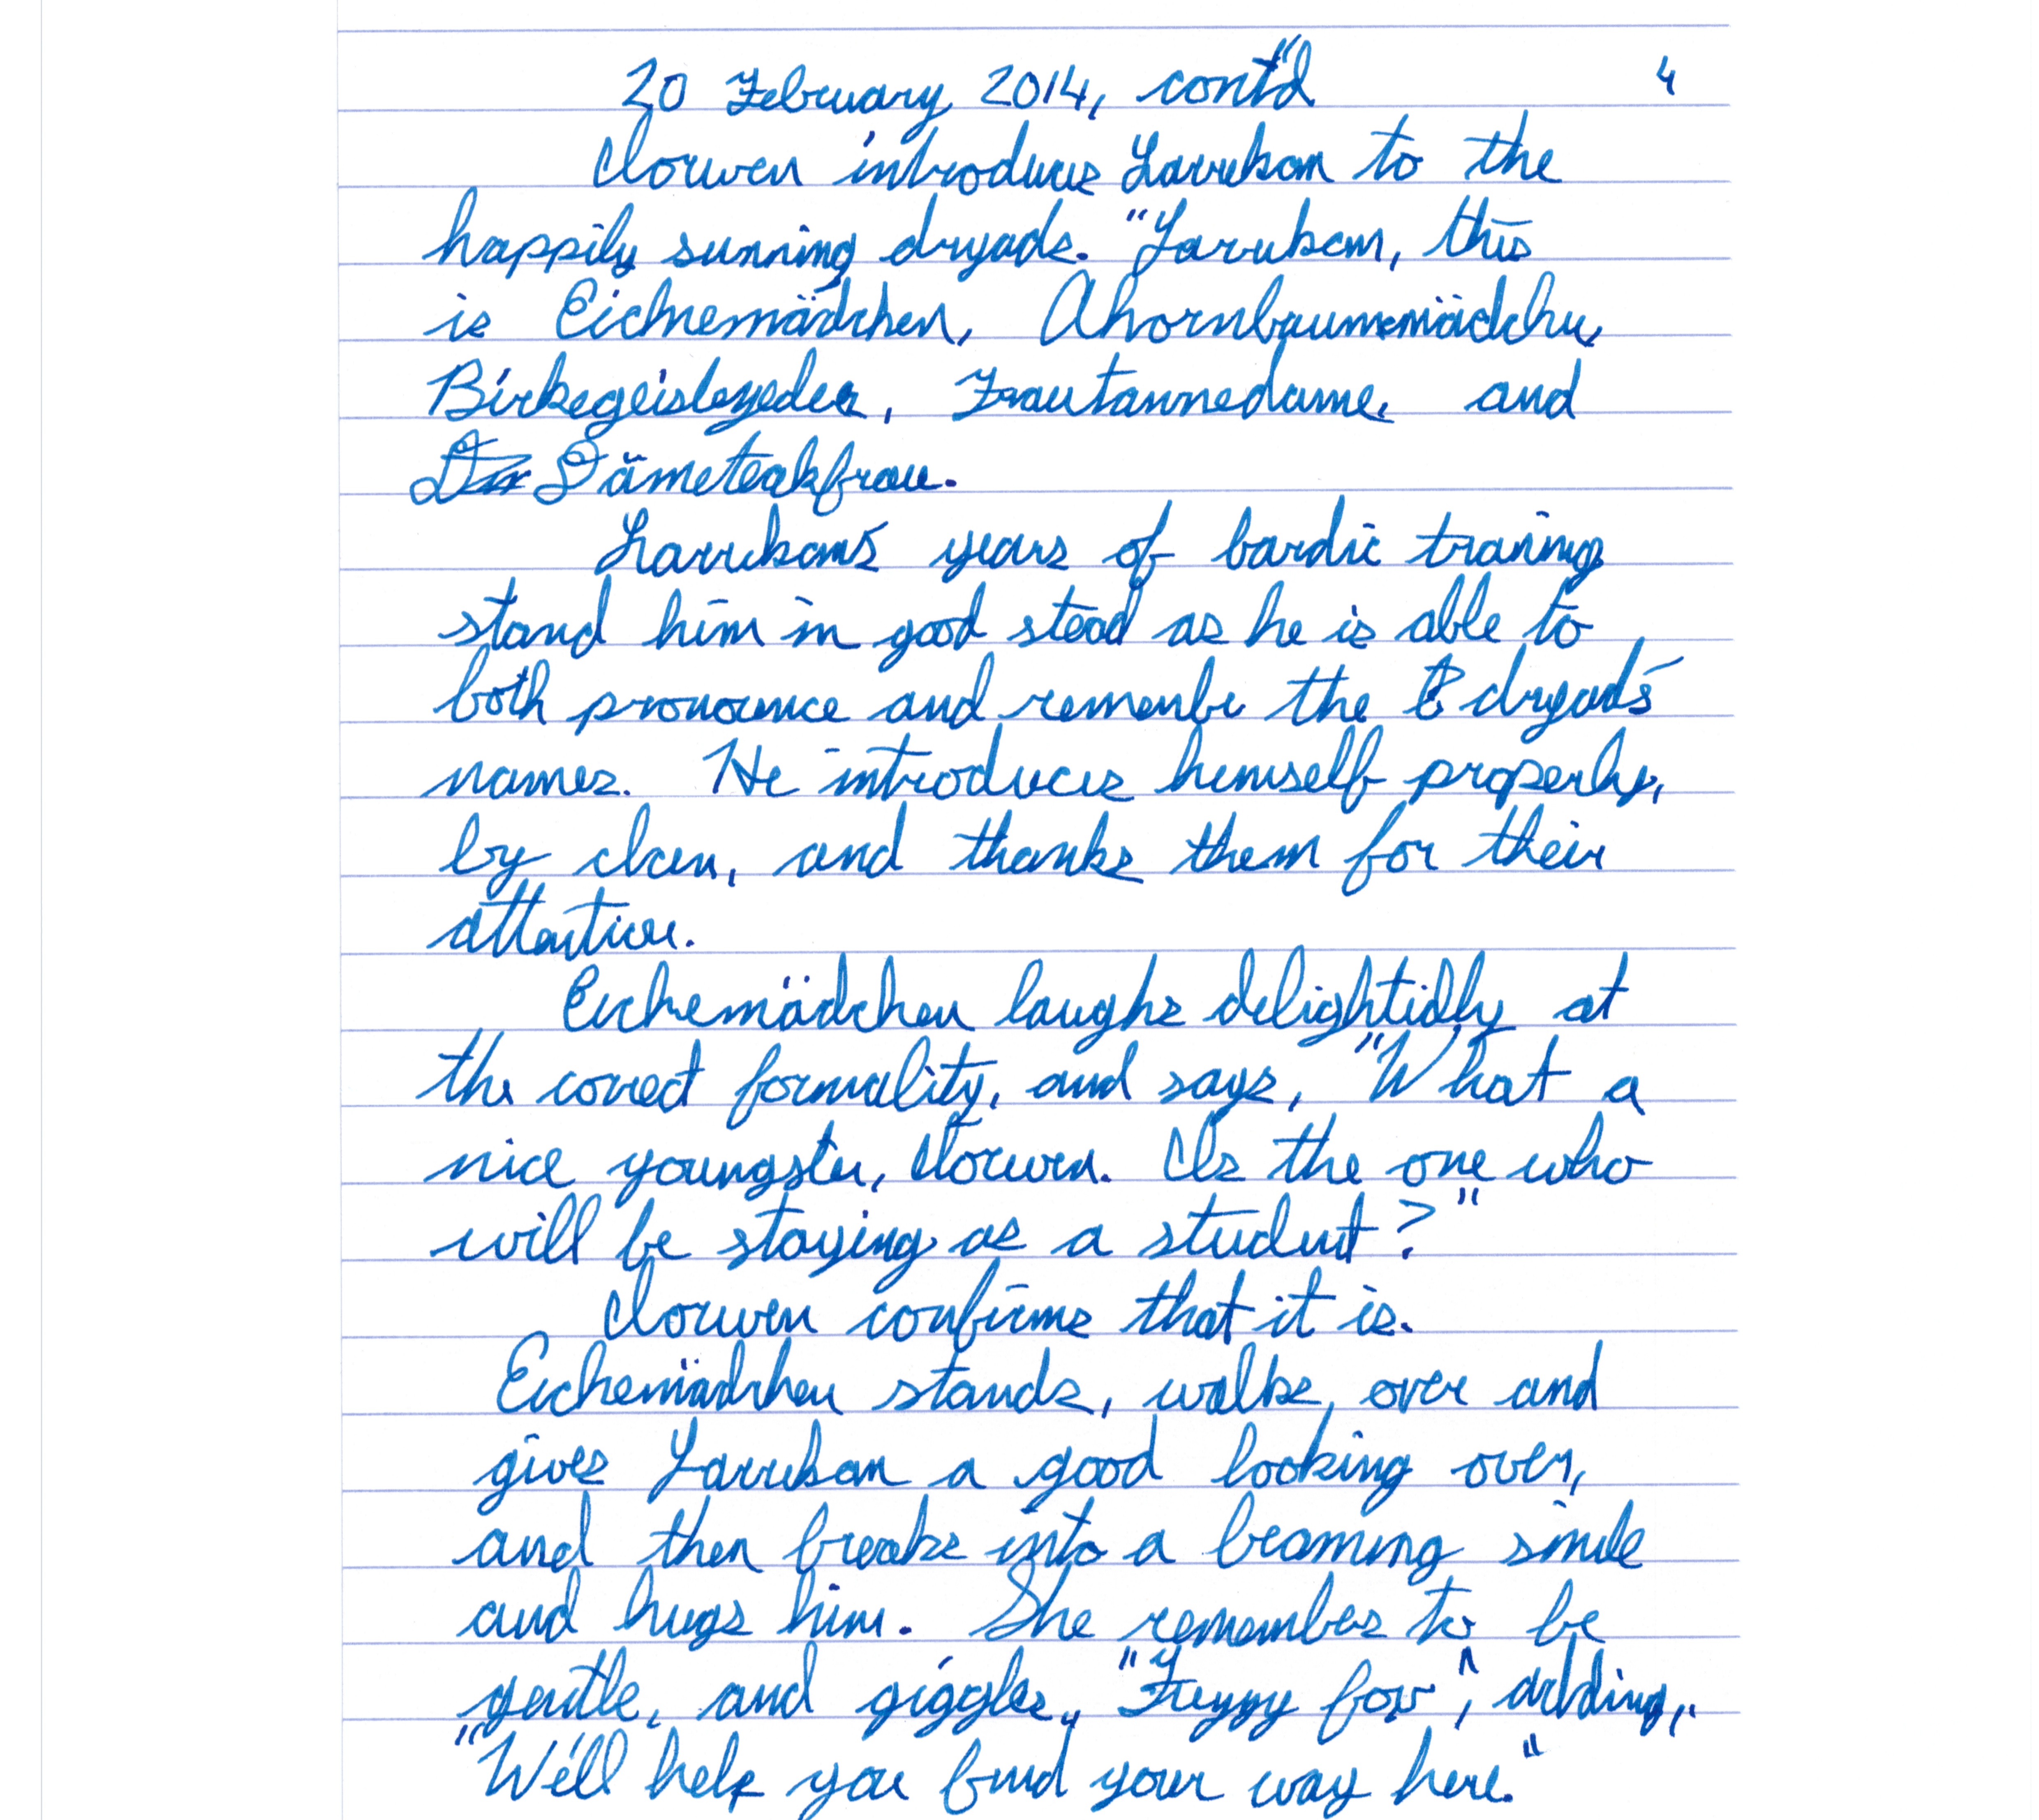 20 February 2014, cont'd 4
Clorwen introduces Larrikan to the
happily sunning dryads. "Larrikan, this
is Eichnemädchen, Ahornbaumsmädchen,
Birkegeist, Frautannedame, and
Dämeteakfrau.
Larrikan's years of bardic training
stand him in good stead as he is able to
both pronounce and remember the dryad's
names. He introduces himself properly,
by clan, and thanks them for their
attention.
Eichemädchen laughs delightidly at
the correct formality, and says, "What a
nice youngster, Clorwen. Is the one who
will be staying as a student?"
Clorwen confirms that it is.
Eichemädchen stands, walks over and
gives Larrikan a good looking over,
and then breaks into a beaming smile
and hugs him. She remembers to be
gentle, and giggles, "Fuzzy fox", adding,
"We'll help you find your way here."